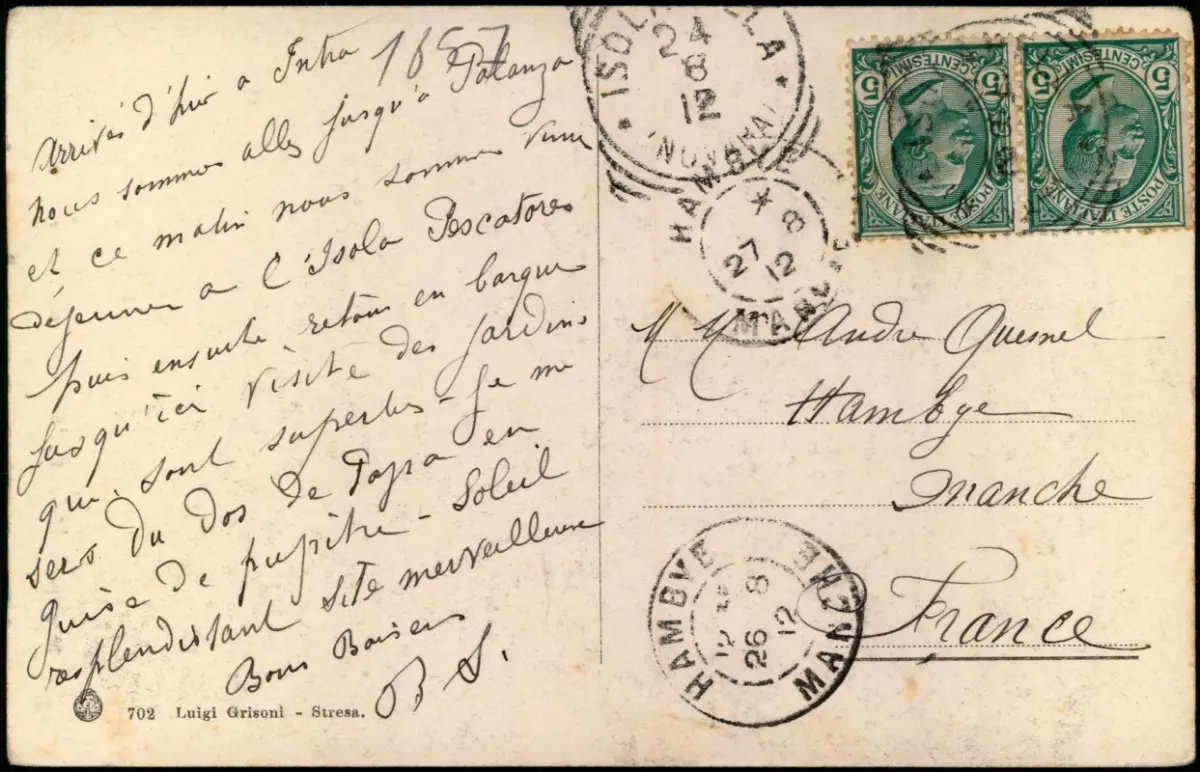 1657
Arrivés d'hier a Intra
nous sommes alles jusqu'a Palanza
et ce matin nous sommes venu
déjeuner a l'Isola Pescatores
puis ensuite retour en barque
jusqu'ici visite des jardins
qui sont superbes - je me
sers du dos de Papa en
guise de pupitre - Soleil
resplendissant site merveilleux
Bons Baisers
B S.
702 Luigi Grisoni - Stresa.
ISOLA BELLA
24
8
12
(NOVARA)
HAMBYE
27 8
12
MANCHE
POSTE ITALIANE
CENTESIMI
5 5
POSTE ITALIANE
CENTESIMI
5 5
M M Andre Quesnel
Hambye
Manche
France
HAMBYE
26 8
12
MANCHE